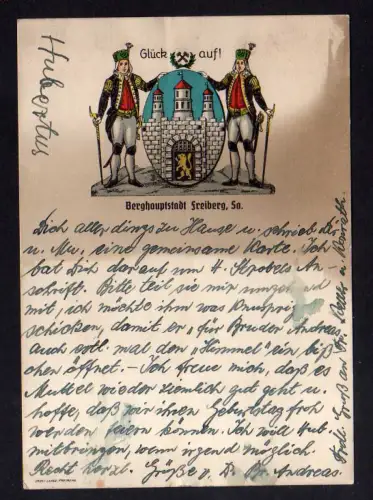 Glück auf!
Hubertus
Berghauptstadt Freiberg, Sa.
Dich allerdings zu Hause u. schrieb Dir
u. Mu. eine gemeinsame Karte. Ich
bat Dich darauf um H. An
schrift. Bitte teil sie mir umgehend
mit, ich möchte ihm was
schießen, damit er „für Bruder Andreas
auch evtl. mal den „Himmel" ein biß
chen öffnet. – Ich freue mich, daß es
Muttel wieder ziemlich gut geht u.
hoffe, daß wir ihren Geburtstag froh
werden feiern können. Ich will Hub.
mitbringen, wenn irgend möglich.
Recht herzl. Grüße v. D. Br. Andreas.
Gruß an u.